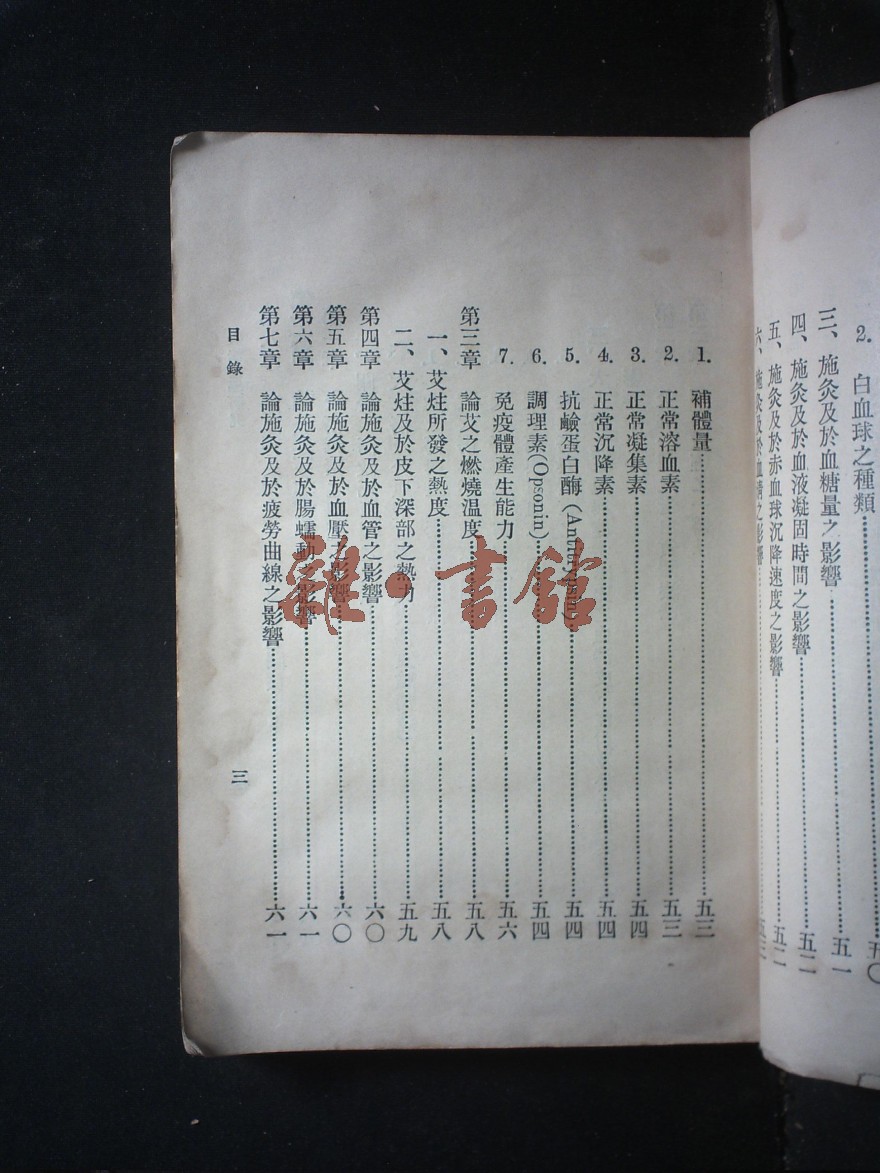 2. 白血球之種類……五〇
三、施灸及於血糖量之影響……五一
四、施灸及於血液凝固時間之影響……五二
五、施灸及於赤血球沉降速度之影響……五二
六、施灸及於血清之影響……五三
1. 補體量……五三
2. 正常溶血素……五三
3. 正常凝集素……五四
4. 正常沉降素……五四
5. 抗鹼蛋白酶(Antitrypsin)……五四
6. 調理素(Opsonin)……五四
7. 免疫體產生能力……五六
第三章 論艾之燃燒温度……五八
一、艾炷所發之熱度……五八
二、艾炷及於皮下深部之熱力……五九
第四章 論施灸及於血管之影響……六〇
第五章 論施灸及於血壓之影響……六〇
第六章 論施灸及於腸蠕動之影響……六一
第七章 論施灸及於疲勞曲線之影響……六一
目錄
三
雜·書館